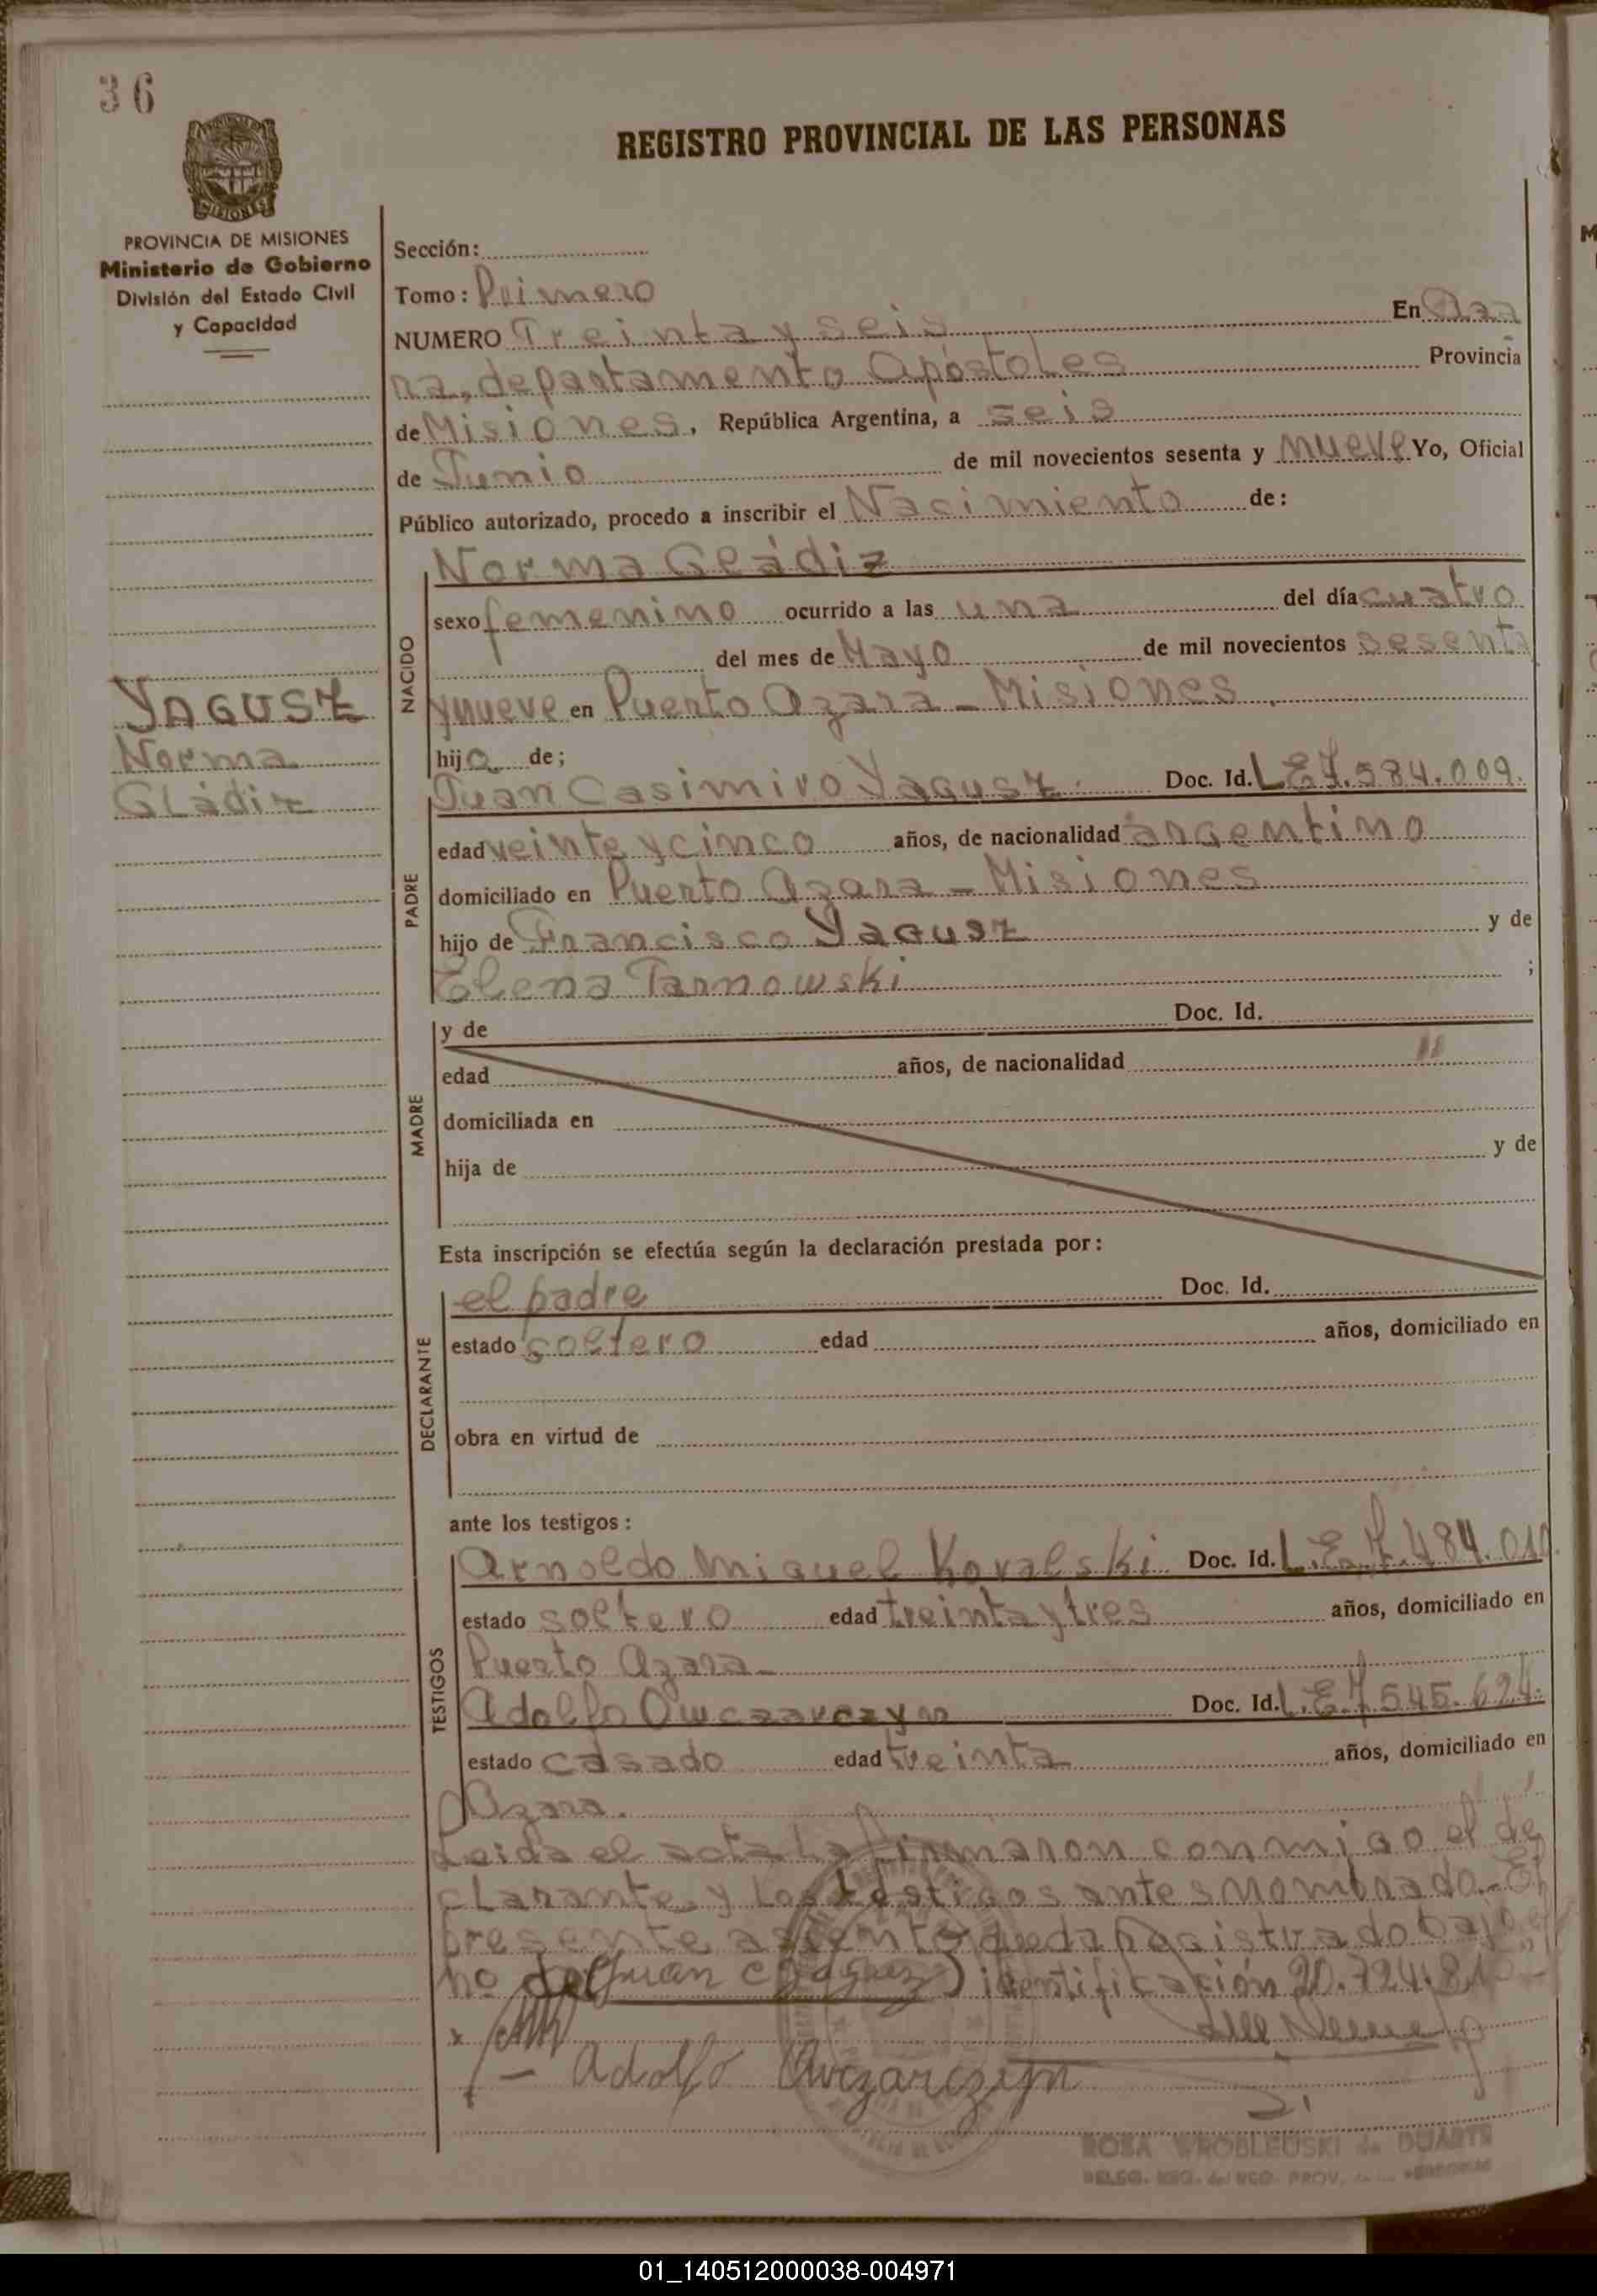 36
REGISTRO PROVINCIAL DE LAS PERSONAS
MISIONES
PROVINCIA DE MISIONES
Ministerio de Gobierno
División del Estado Civil
y Capacidad
Sección:
Tomo: Primero
NUMERO Treinta y seis En Aza
ra, departamento Apóstoles Provincia
de Misiones, República Argentina, a seis
de Junio de mil novecientos sesenta y nueve Yo, Oficial
Público autorizado, procedo a inscribir el Nacimiento de:
YAGUSZ
Norma
Gládiz
NACIDO
Norma Gládiz
sexo femenino ocurrido a las una del día cuatro
del mes de Mayo de mil novecientos sesenta
y nueve en Puerto Azara - Misiones
hija de;
PADRE
Juan Casimiro Yagusz Doc. Id. L E 7.584.009.
edad veinte y cinco años, de nacionalidad argentino
domiciliado en Puerto Azara - Misiones
hijo de Francisco Yagusz y de
Elena Tarnowski ;
MADRE
y de Doc. Id.
edad años, de nacionalidad
domiciliada en
hija de y de
Esta inscripción se efectúa según la declaración prestada por:
DECLARANTE
el padre Doc. Id.
estado soltero edad años, domiciliado en
obra en virtud de
ante los testigos:
TESTIGOS
Arnoldo Miguel Kovalski Doc. Id. L.E. 7.484.010
estado soltero edad treinta y tres años, domiciliado en
Puerto Azara -
Adolfo Owczarczyn Doc. Id. L.E. 7.545.624.
estado casado edad treinta años, domiciliado en
Azara.
Leida el acta la firmaron conmigo el de
clarante y los testigos antes nombrado. El
presente asiento queda registrado bajo el
nº de identificación 20.724.81
Adolfo Owczarczyn
ROSA WROBLEUSKI de DUARTE
DELEG. REG. del REG. PROV. de las PERSONAS
01_140512000038-004971